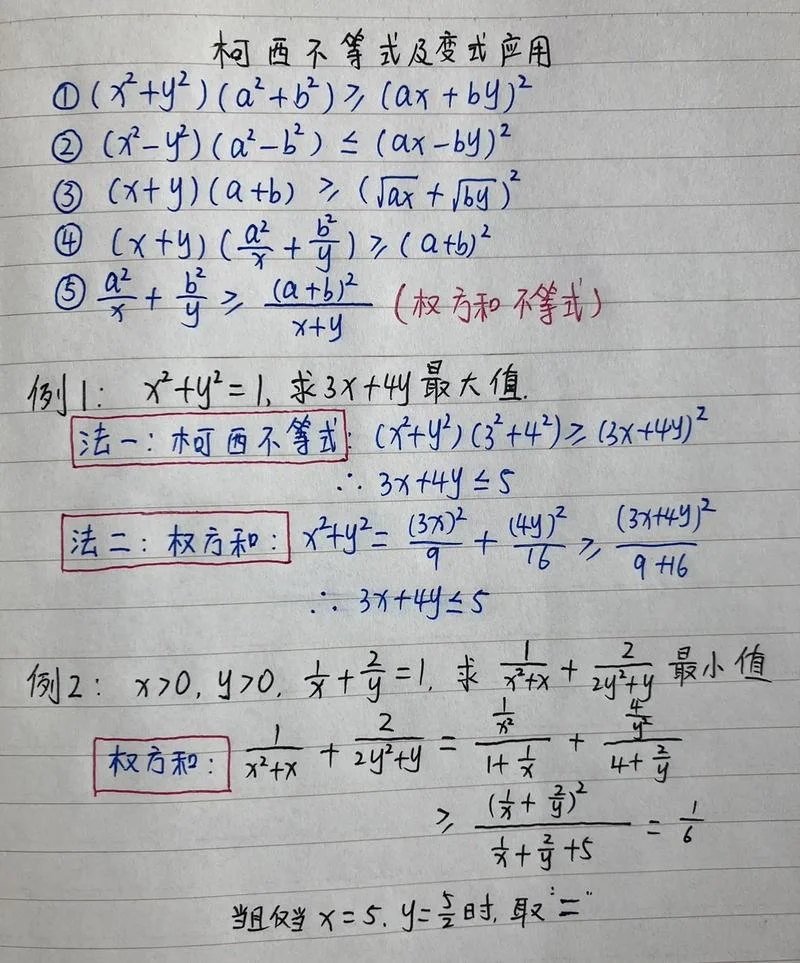 柯西不等式及变式应用
① (x²+y²)(a²+b²)≥(ax+by)²
② (x²-y²)(a²-b²)≤(ax-by)²
③ (x+y)(a+b)≥(√ax+√by)²
④ (x+y)(a²/x+b²/y)≥(a+b)²
⑤ a²/x+b²/y≥(a+b)²/(x+y) (权方和不等式)
例1: x²+y²=1, 求3x+4y最大值.
法一:柯西不等式: (x²+y²)(3²+4²)≥(3x+4y)²
∴ 3x+4y≤5
法二:权方和: x²+y²=(3x)²/9+(4y)²/16≥(3x+4y)²/(9+16)
∴ 3x+4y≤5
例2: x>0, y>0, 1/x+2/y=1, 求 1/(x²+x)+2/(2y²+y) 最小值
权方和: 1/(x²+x)+2/(2y²+y)=(1/x²)/(1+1/x)+(4/y²)/(4+2/y)
≥(1/x+2/y)²/(1/x+2/y+5)=1/6
当且仅当x=5, y=5/2时, 取"="